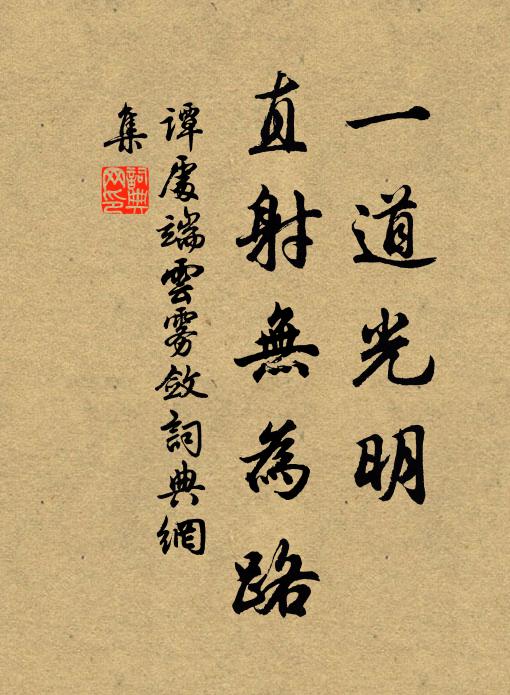 一道光明
直射無為路
譚處端雲雾斂詞典網
集
詞典网印